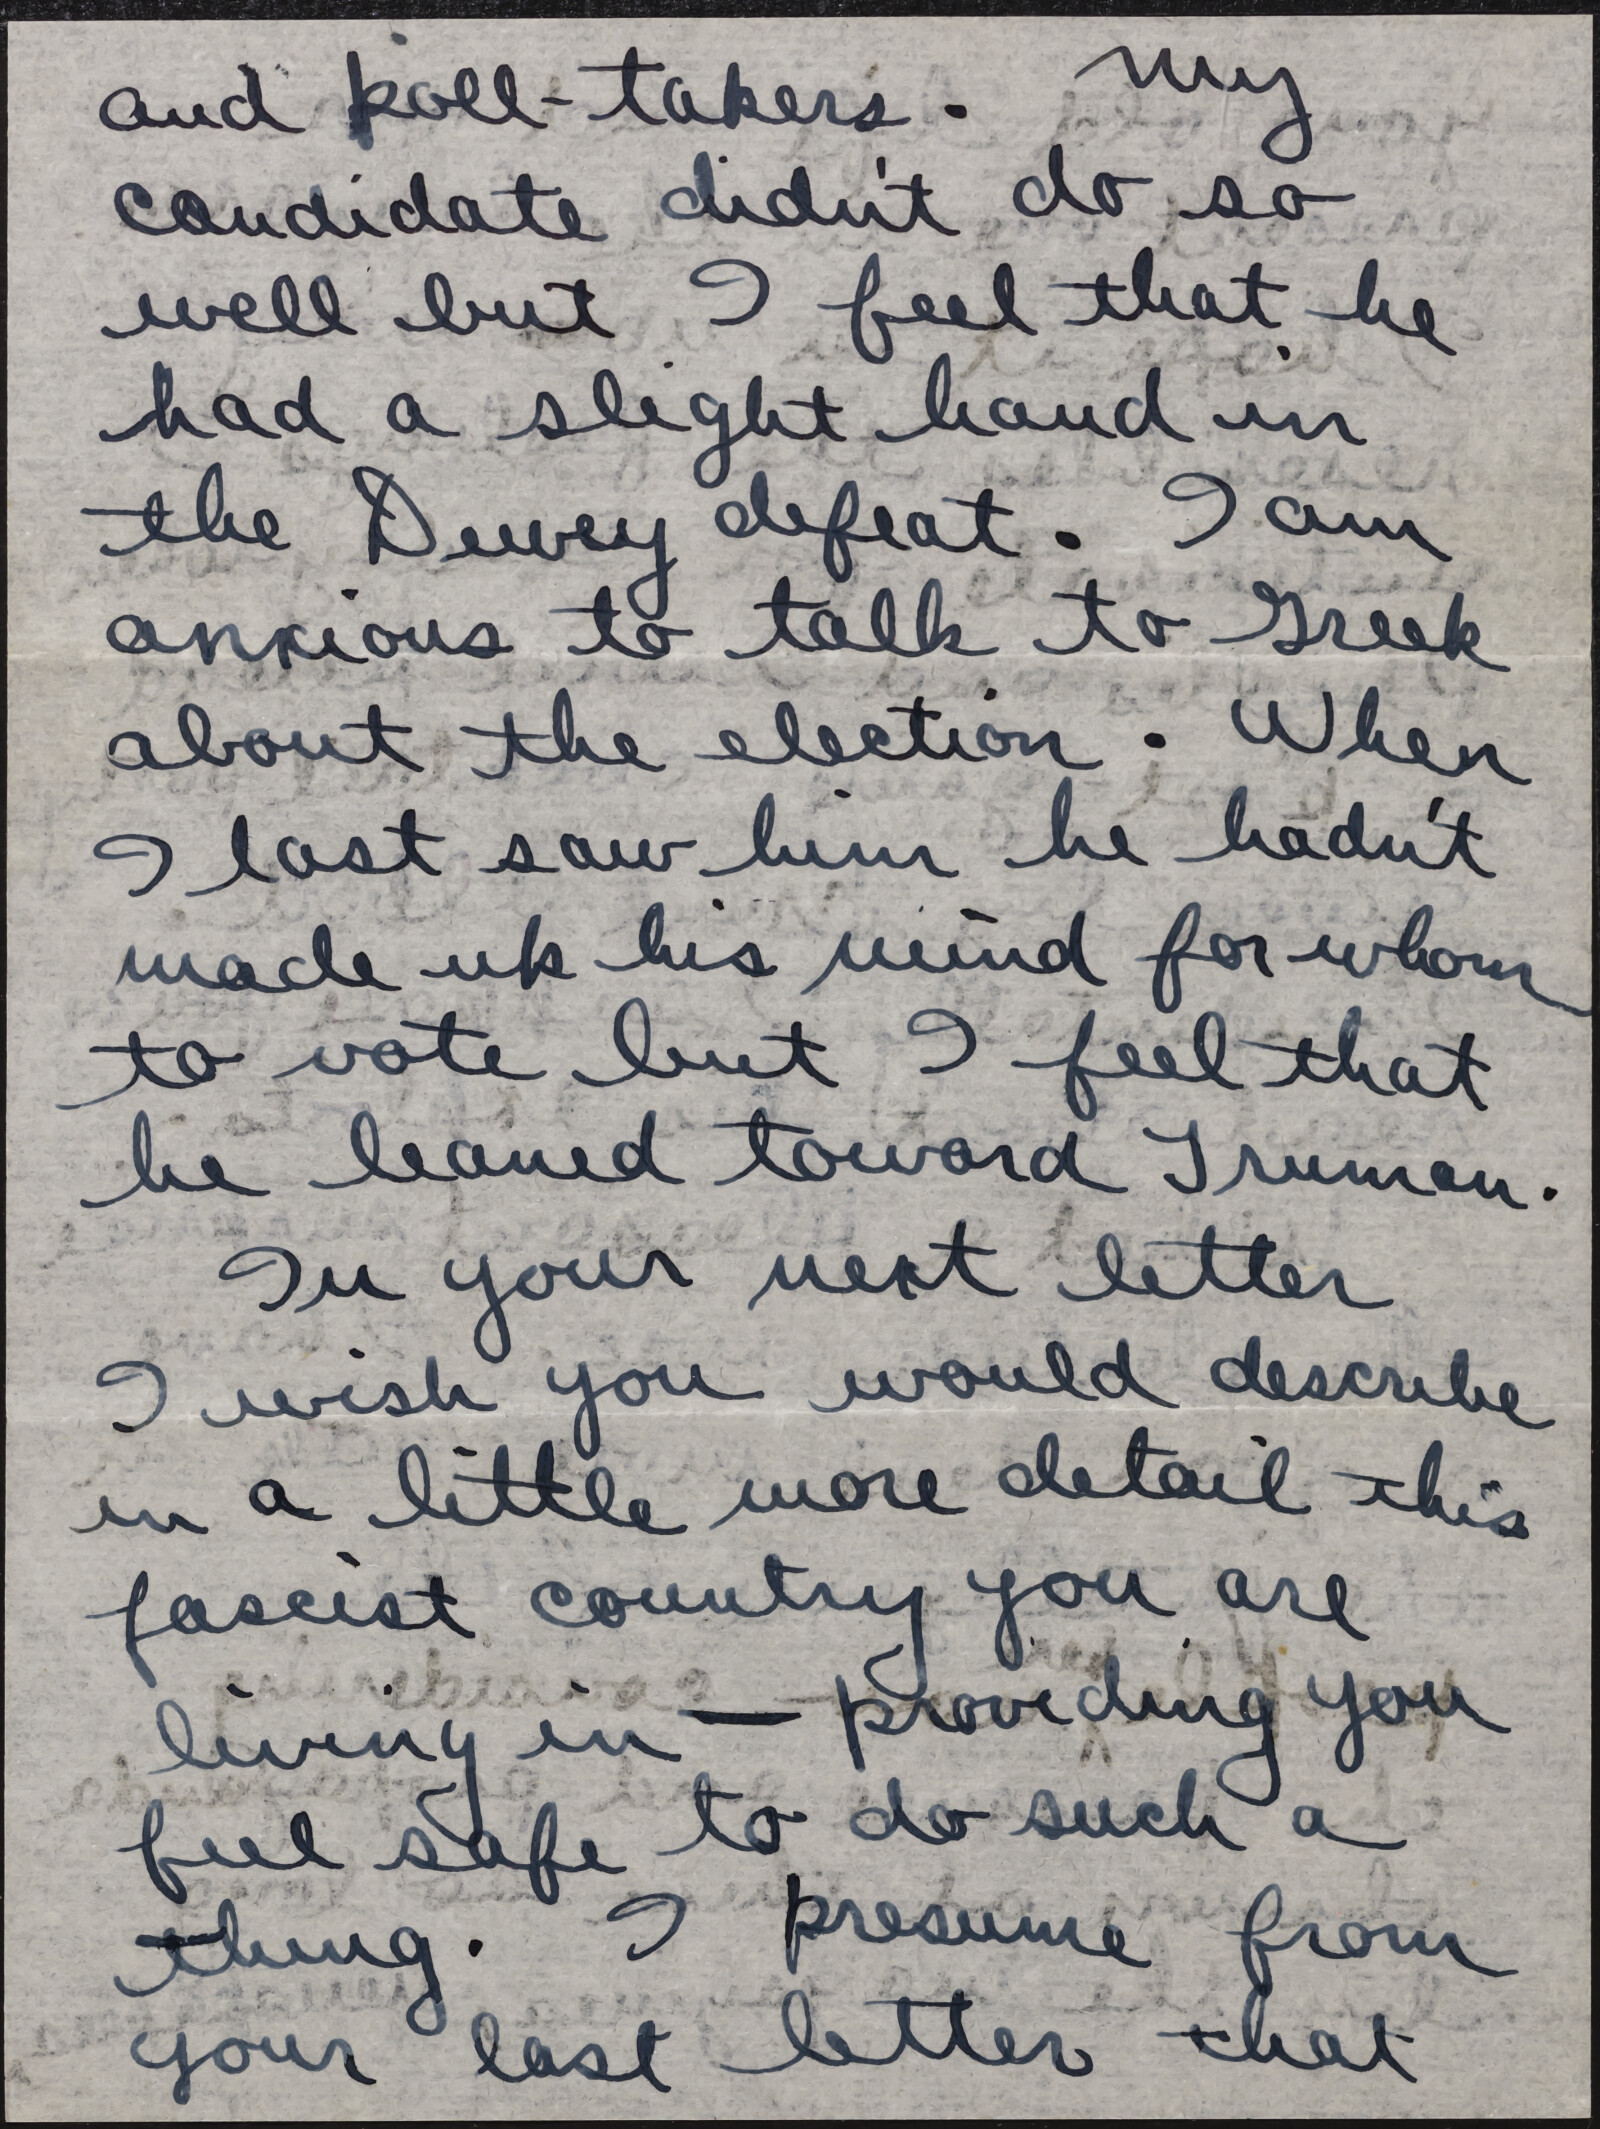 and poll-takers. My
candidate didn't do so
well but I feel that he
had a slight hand in
the Dewey defeat. I am
anxious to talk to Greek
about the election. When
I last saw him he hadn't
made up his mind for whom
to vote but I feel that
he leaned toward Truman.
In your next letter
I wish you would describe
in a little more detail this
fascist country you are
living in — providing you
feel safe to do such a
thing. I presume from
your last letter that